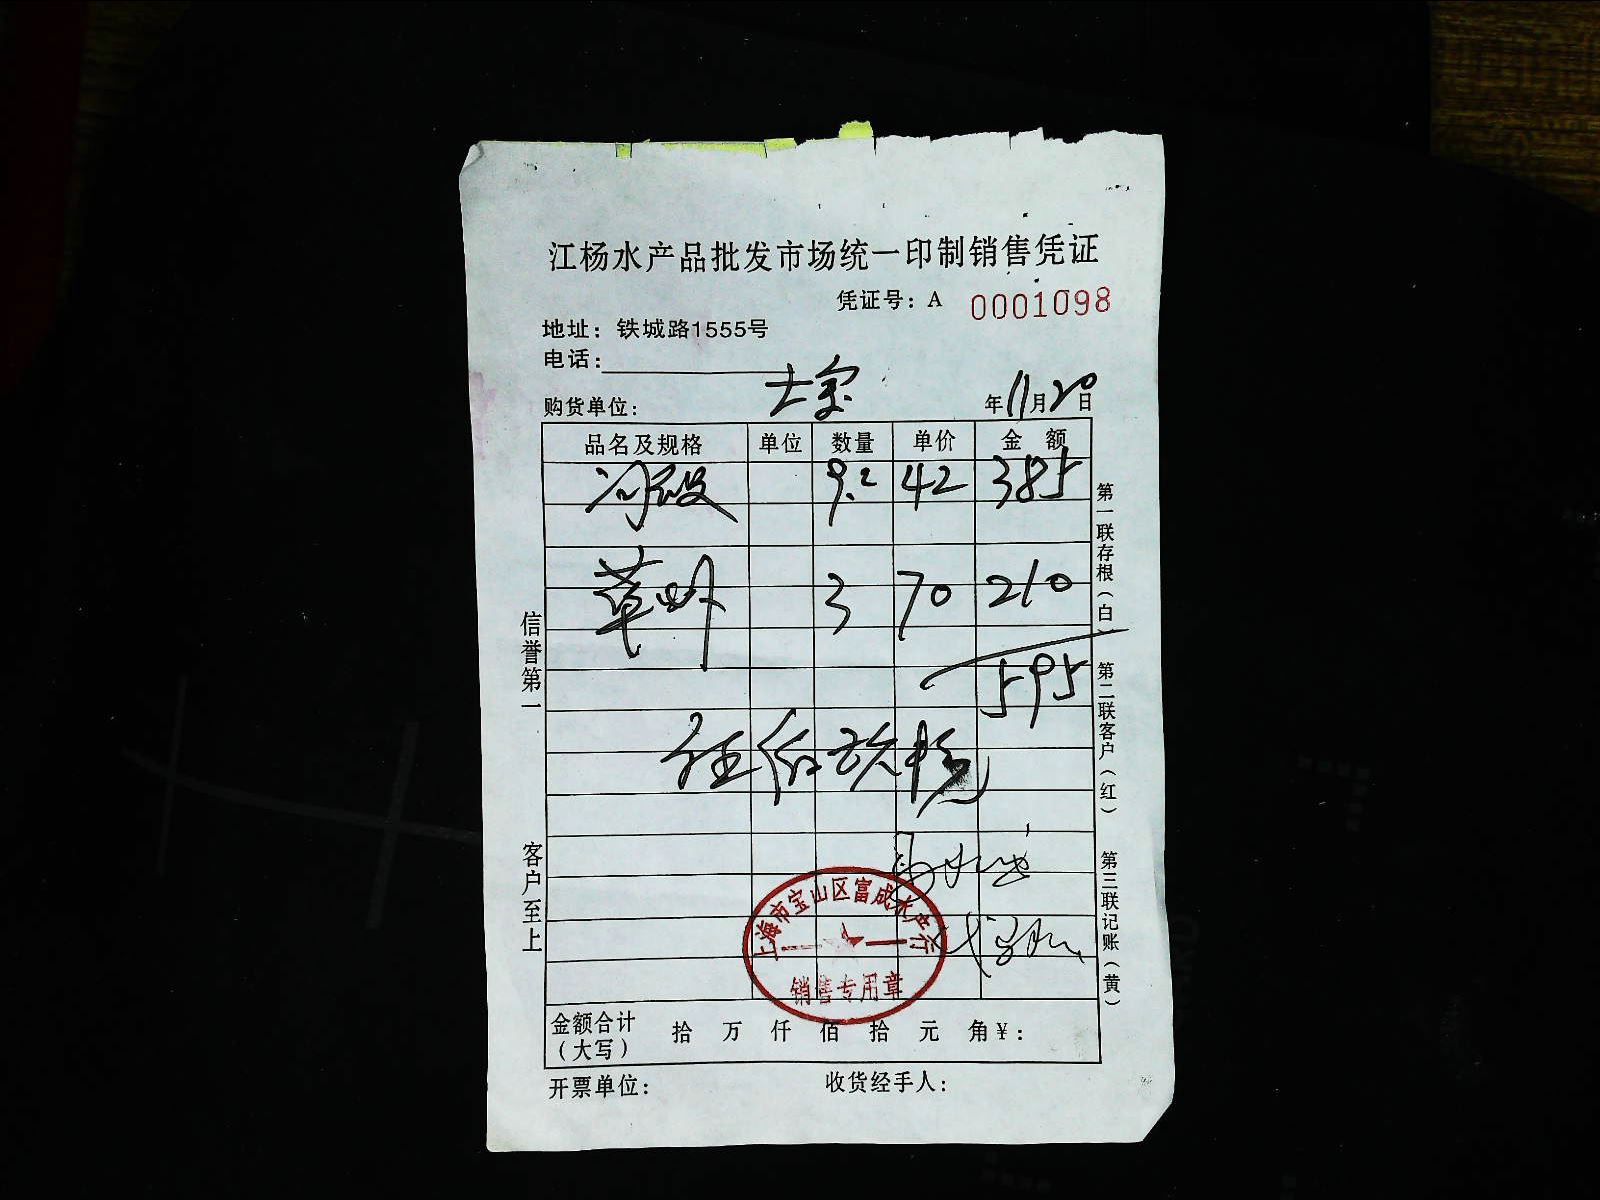 江杨水产品批发市场统一印制销售凭证
凭证号：A 0001098
地址：铁城路1555号
电话：
购货单位： 年11月20日
品名及规格 单位 数量 单价 金额
9.2 42 385
草虾 3 70 210
595
金额合计（大写） 拾 万 仟 佰 拾 元 角 ¥：
开票单位： 收货经手人：
信誉第一
客户至上
第一联存根（白）
第二联客户（红）
第三联记账（黄）
上海市宝山区富成水产行
销售专用章